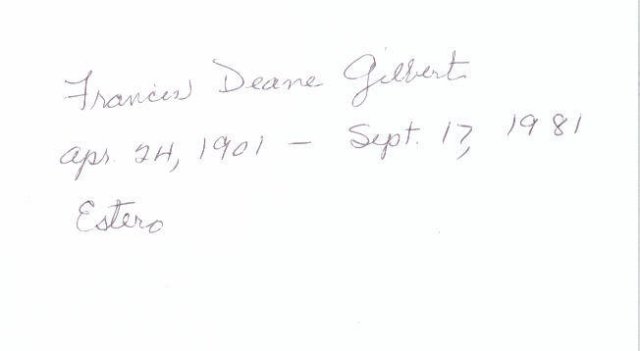 Frances Deane Gilbert
Apr. 24, 1901 - Sept. 17, 1981
Estero